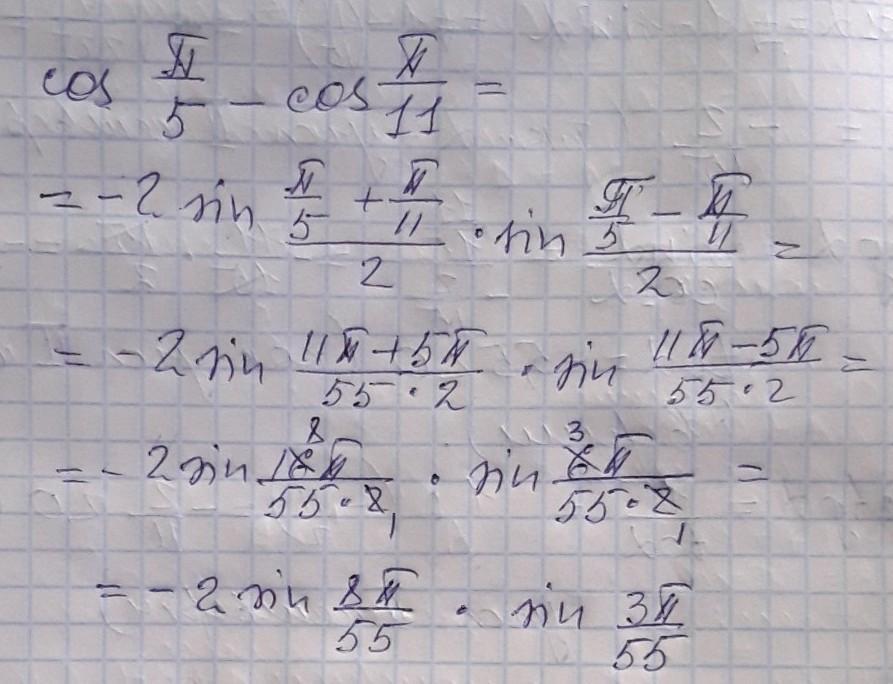 cos π/5 - cos π/11 =
= -2 sin (π/5 + π/11)/2 · sin (π/5 - π/11)/2 =
= -2 sin (11π+5π)/(55·2) · sin (11π-5π)/(55·2) =
= -2 sin 16π/(55·2) 8 1 · sin 6π/(55·2) 3 1 =
= -2 sin 8π/55 · sin 3π/55